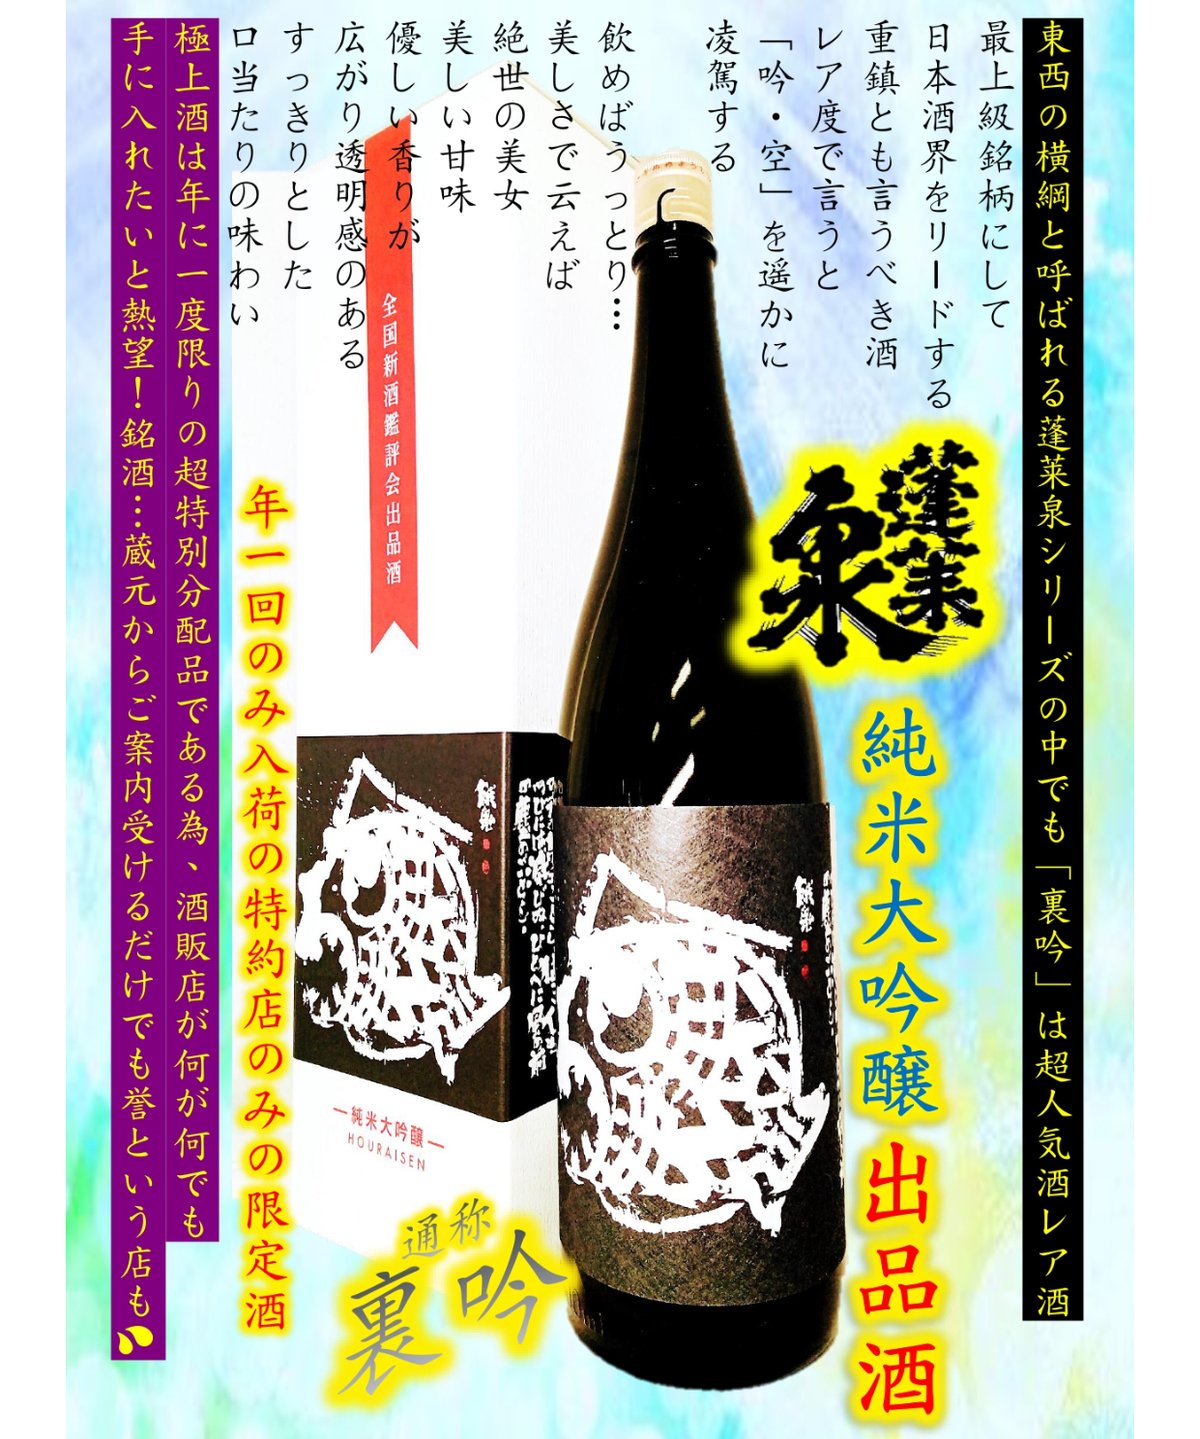 東西の横綱と呼ばれる蓬莱泉シリーズの中でも「裏吟」は超人気酒レア酒
最上級銘柄にして
日本酒界をリードする
重鎮とも言うべき酒
レア度で言うと
「吟・空」を遥かに
凌駕する
飲めばうっとり…
美しさで云えば
絶世の美女
美しい甘味
優しい香りが
広がり透明感のある
すっきりとした
口当たりの味わい
極上酒は年に一度限りの超特別分配品である為、酒販店が何が何でも
手に入れたいと熱望！銘酒…蔵元からご案内受けるだけでも誉という店も
蓬莱
泉
純米大吟醸出品酒
全国新酒鑑評会出品酒
年一回のみ入荷の特約店のみの限定酒
純米大吟醸
HOURAISEN
通称
裏吟